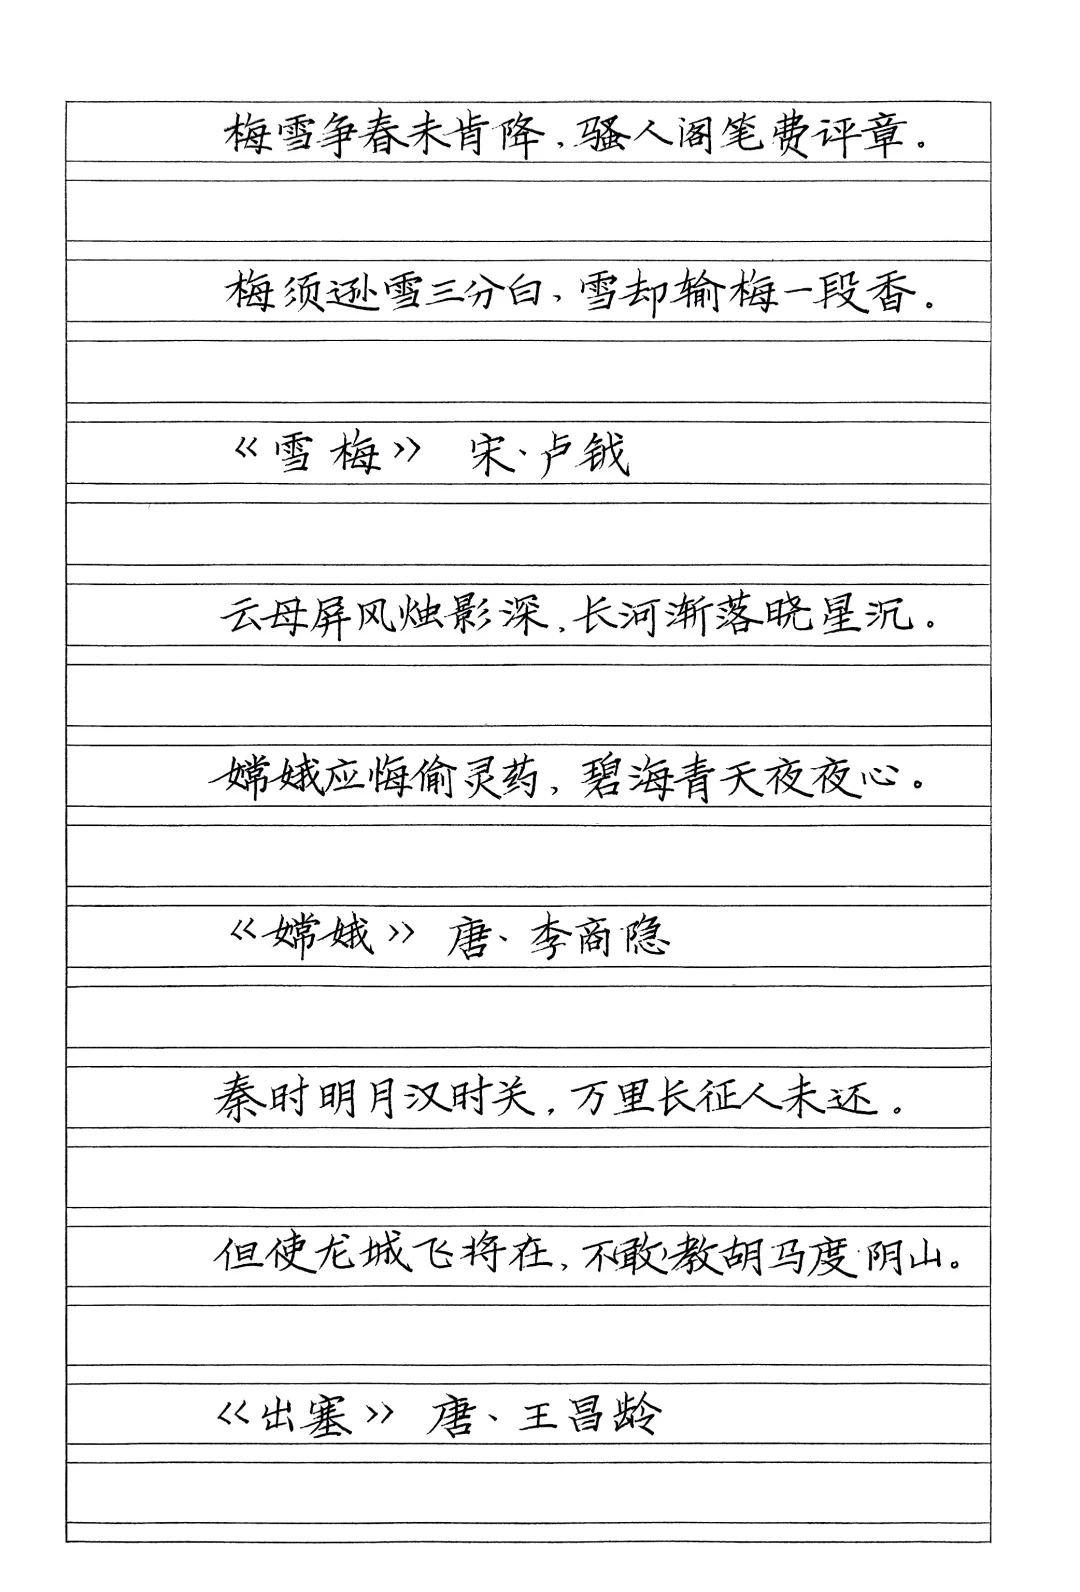 梅雪争春未肯降，骚人阁笔费评章。
梅须逊雪三分白，雪却输梅一段香。
《雪梅》 宋·卢钺
云母屏风烛影深，长河渐落晓星沉。
嫦娥应悔偷灵药，碧海青天夜夜心。
《嫦娥》 唐·李商隐
秦时明月汉时关，万里长征人未还。
但使龙城飞将在，不敢教胡马度阴山。
《出塞》 唐·王昌龄